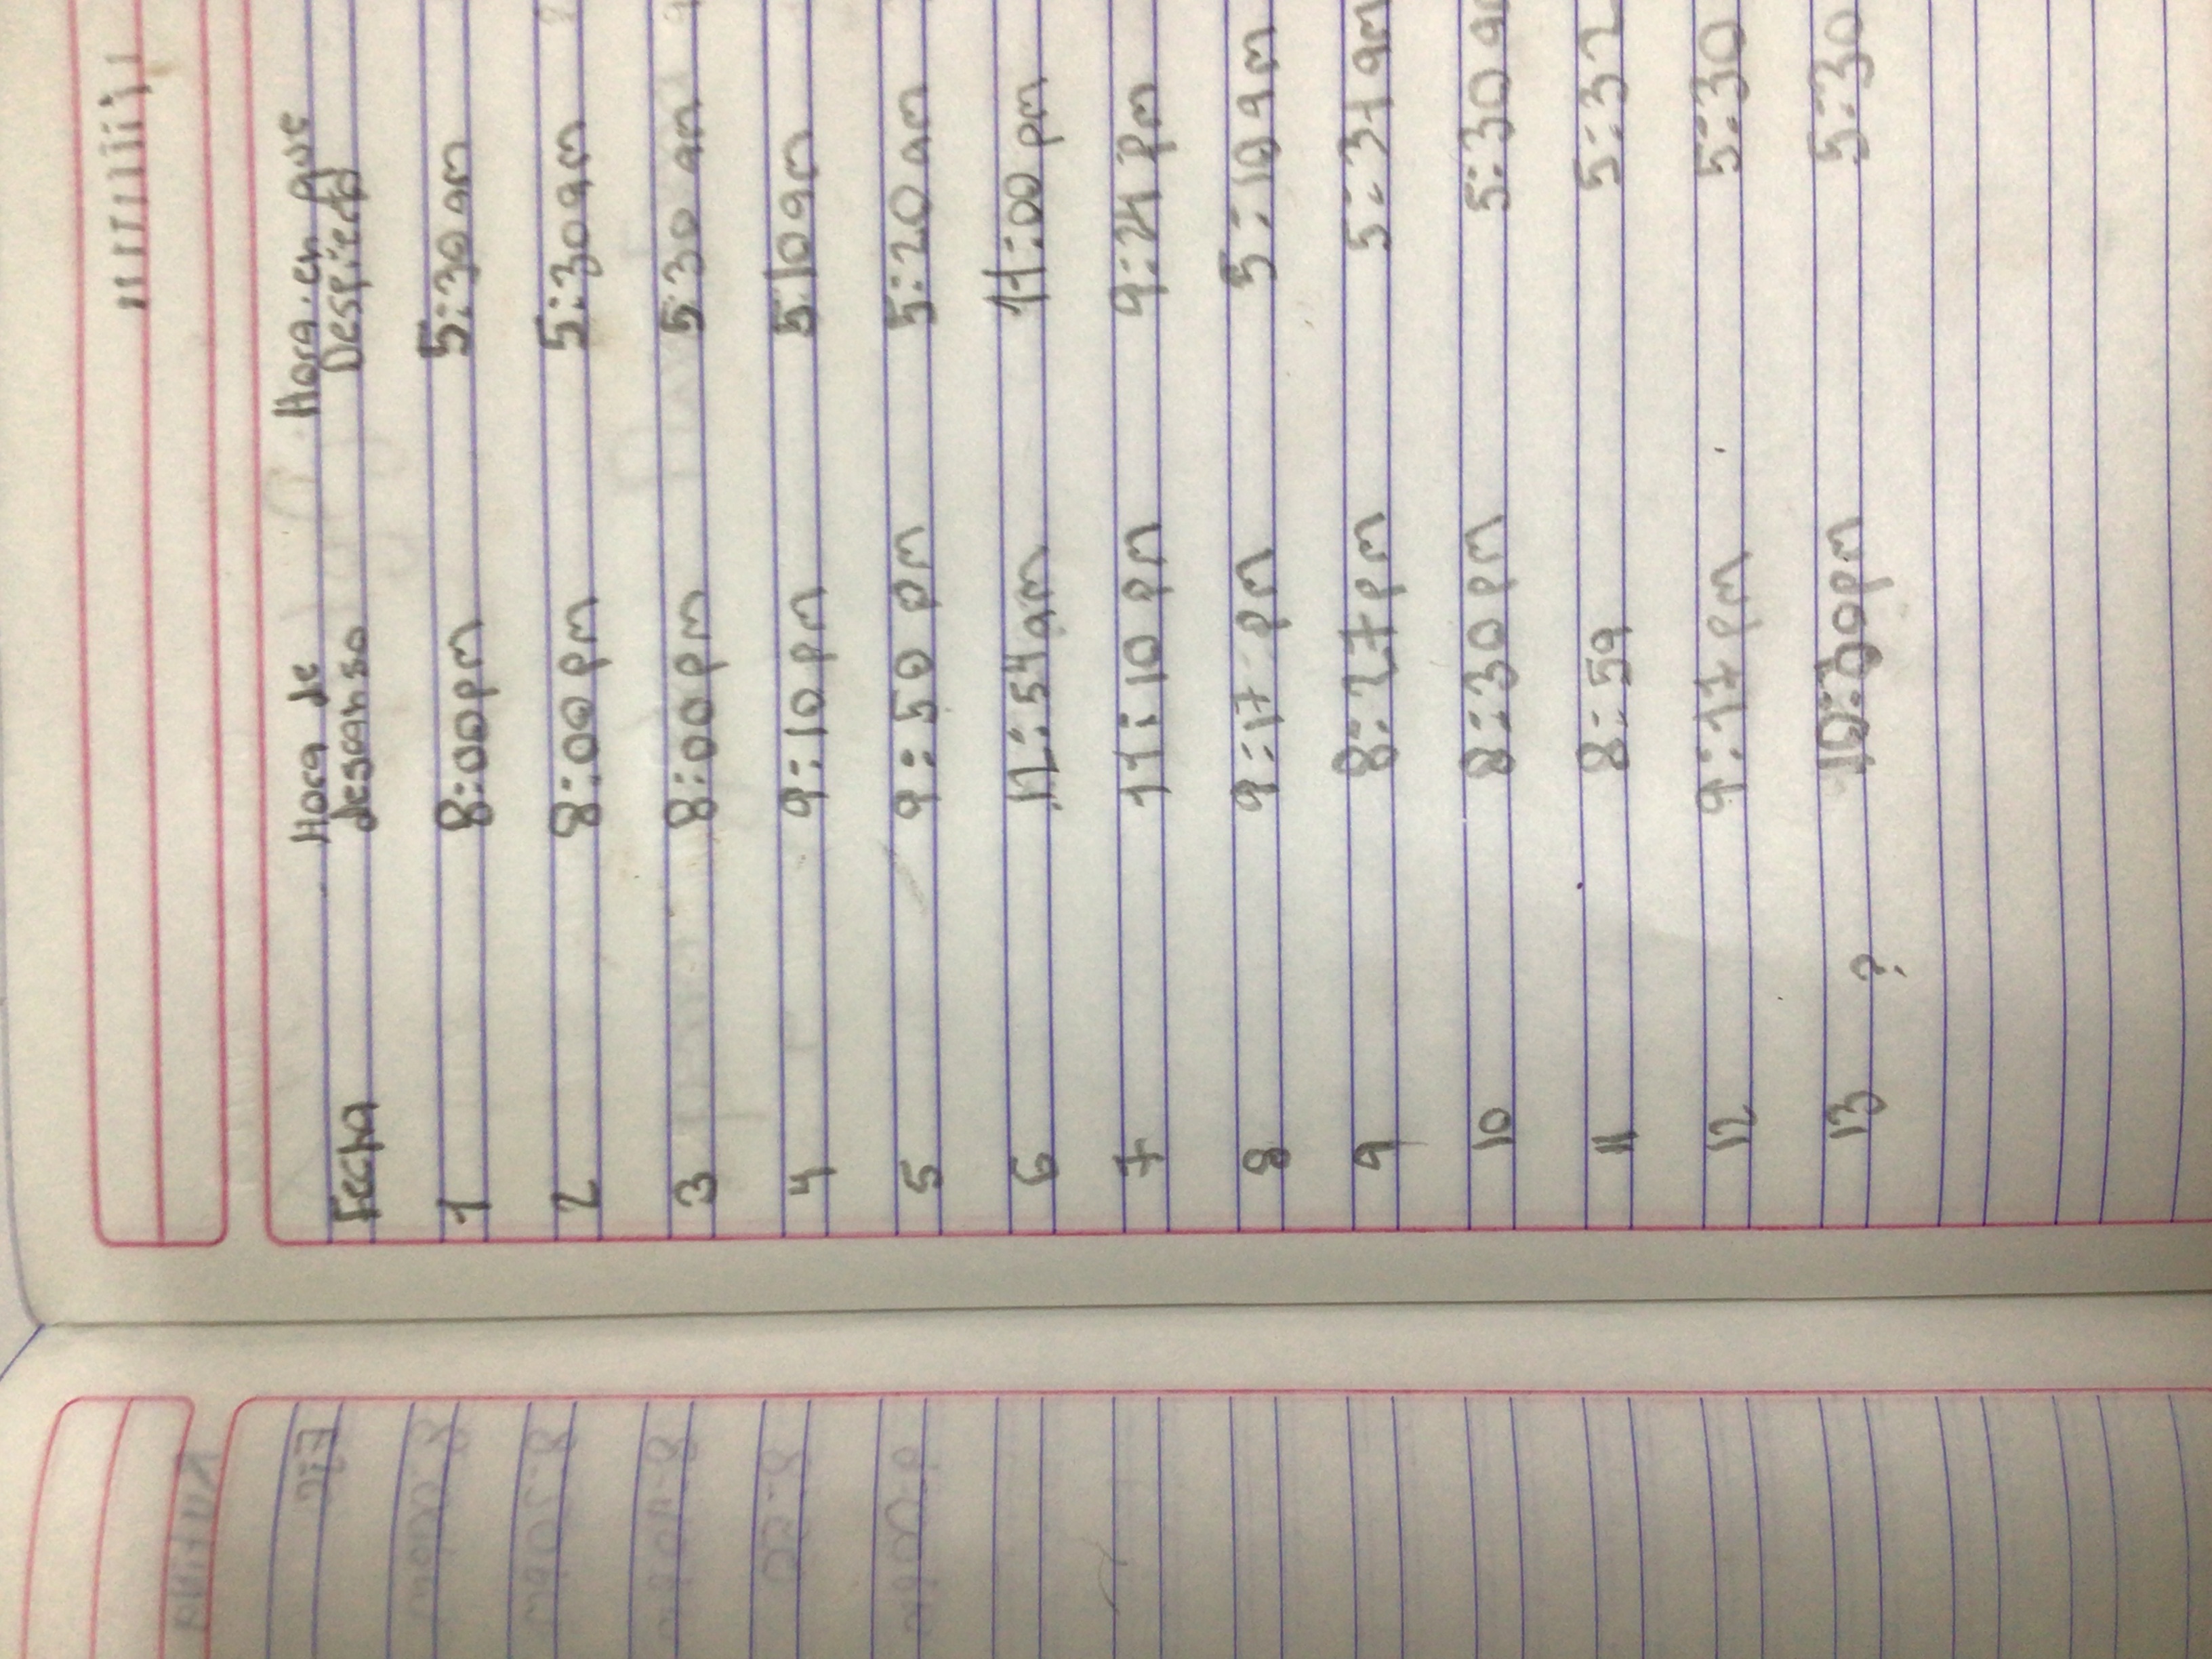 Fecha Hora de descanso Hora en que Despierta
1 8:00pm 5:30am
2 8:00pm 5:30am
3 8:00pm 5:30am
4 9:10pm 5:10am
5 9:50 pm 5:20am
6 12:54am 11:00pm
7 11:10 pm 9:24 pm
8 9:17 pm 5:19am
9 8:27pm 5:31am
10 8:30pm 5:30a
11 8:59 5:32
12 9:17pm 5:30
13 ? 10:00pm 5:30